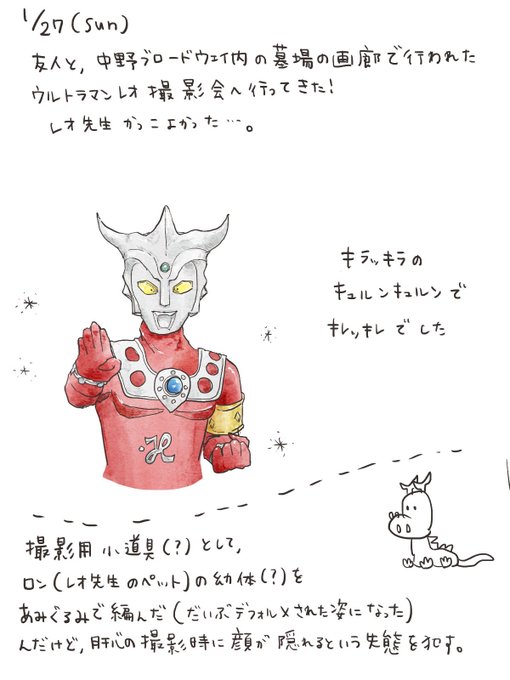 1/27(sun)
友人と、中野ブロードウェイ内の墓場の画廊で行われた
ウルトラマンレオ撮影会へ行ってきた!
レオ先生かっこよかった…。
キラッキラの
キュルンキュルンで
キレッキレでした
撮影用小道具(?)として、
ロン(レオ先生のペット)の幼体(?)を
あみぐるみで編んだ(だいぶデフォルメされた姿になった)
んだけど、肝心の撮影時に顔が隠れるという失態を犯す。